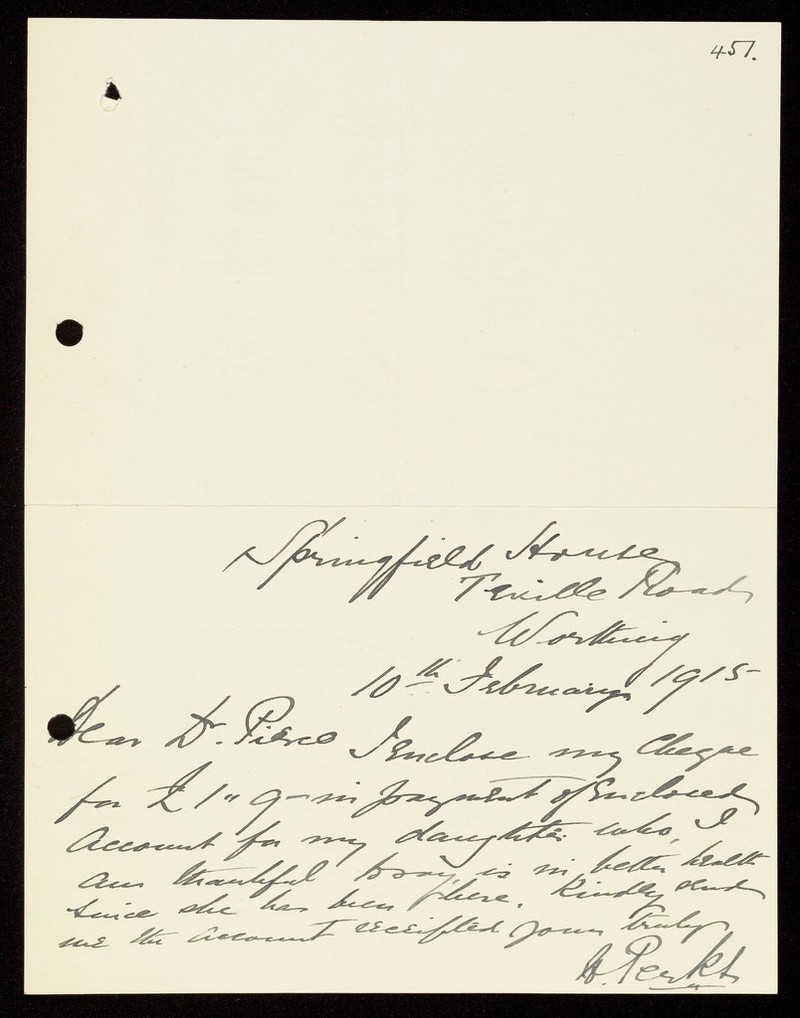 451.
Springfield House
Teville Road
Worthing
10th February 1915
Dear Dr. Pierce I Enclose my Cheque
for £1 " 9 - in payment of Enclosed
Account for my daughter who, I
am thankful to say is in better health
since she has been here. Kindly send
me the account receipted yours truly
H.